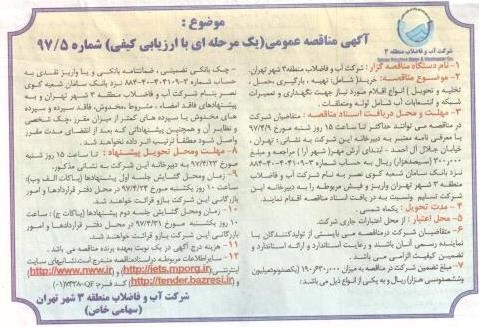 موضوع :
آگهی مناقصه عمومی(یک مرحله ای با ارزیابی کیفی) شماره ۹۷/۵
شرکت آب و فاضلاب منطقه ۳
۱- نام دستگاه مناقصه گزار : شرکت آب و فاضلاب منطقه ۳ شهر تهران.
۲- موضوع مناقصه: خرید( شامل: تهیه ، بارگیری ،حمل ،
تخلیه و تحویل ) انواع اقلام مورد نیاز جهت نگهداری و تعمیرات
شبکه و انشعابات آب شامل لوله ومتعلقات .
۳- مهلت و محل دریافت اسناد مناقصه : متقاضیان شرکت
در مناقصه می توانند حداکثر تا ساعت ۱۵ روز شنبه مورخ ۹۷/۴/۹
با معرفی نامه معتبر به دبیرخانه این شرکت به نشانی: تهران ،
خیابان جلال آل احمد - ابتدای ارش مهر( شهر آرا ) مراجعه و مبلغ
۳۰۰,۰۰۰ (سیصدهزار) ریال به حساب شماره ۲-۴۰۴۱۰۹-۴۰-۸۸۳
نزد بانک سامان شعبه کوی نصر به نام شرکت آب و فاضلاب
منطقه ۳ شهر تهران واریز و فیش مربوطه را به دبیرخانه این
شرکت تسلیم ونسبت به در یافت اسناد مناقصه اقدام نمایند.
۴ - مدت تحویل : یکماه شمسی .
۵ - محل اعتبار : از محل اعتبارات جاری شرکت.
۶- متقاضیان شرکت درمناقصه می بایستی از تولیدکنندگان یا
نماینده رسمی آنان باشند و رعایت استاندارد و ارائه استاندارد و
تضمین کیفیت الزامی می باشد.
۷- مبلغ تضمین شرکت در مناقصه به میزان ۱۹۰,۶۳۰,۰۰۰ (یکصدونودمیلیون
وششصدوسی هزار) ریال و به یکی از انواع ذیل می باشد:
- چک بانکی تضمینی ، ضمانتنامه بانکی و یا واریز نقدی به
حساب شماره ۲-۴۰۴۱۰۹-۴۰-۸۸۳ نزد بانک سامان شعبه کوی
نصر بنام شرکت آب و فاضلاب منطقه ۳ شهر تهران و به
پیشنهادهای فاقد امضاء ، مشروط ،مخدوش ، فاقد سپرده و سپرده
های مخدوش یا سپرده های کمتر از میزان مقرر ،چک شخصی
و نظایر آن و همچنین پیشنهاداتی که بعد از انقضای مدت مقرر
واصل شود مطلقا ترتیب اثر داده نخواهد شد.
۸- مهلت ومحل تحویل پیشنهاد : تا ساعت ۱۵ روز شنبه
مورخ ۹۷/۴/۲۳ به دبیرخانه این شرکت به نشانی مذکور.
۹- زمان ومحل گشایش جلسه اول پیشنهادها (پاکات الف، وب):
ساعت ۱۰ روز یکشنبه مورخ ۹۷/۴/۲۴ در محل دفتر قراردادها و امور
بازرگانی این شرکت بازو قرائت خواهند شد.
۱۰- زمان ومحل گشایش جلسه دوم پیشنهادها (پاکات ج) : ساعت
۱۰ روز یکشنبه مورخ ۹۷/۴/۳۱ در محل دفتر قراردادها و امور
بازرگانی این شرکت باز و قرائت خواهند شد.
۱۱- هزینه درج آگهی در یک نوبت بعهده برنده مناقصه می باشد .
۱۲- سایراطلاعات مربوطه دراسنادمناقصه مندرج است نشانیهای سایت
اینترنتی(http://iets.mporg.ir) و (http://www.nww.ir)
و (http://tender.bazresi.ir)
شرکت آب و فاضلاب منطقه ۳ شهر تهران
(سهامی خاص)